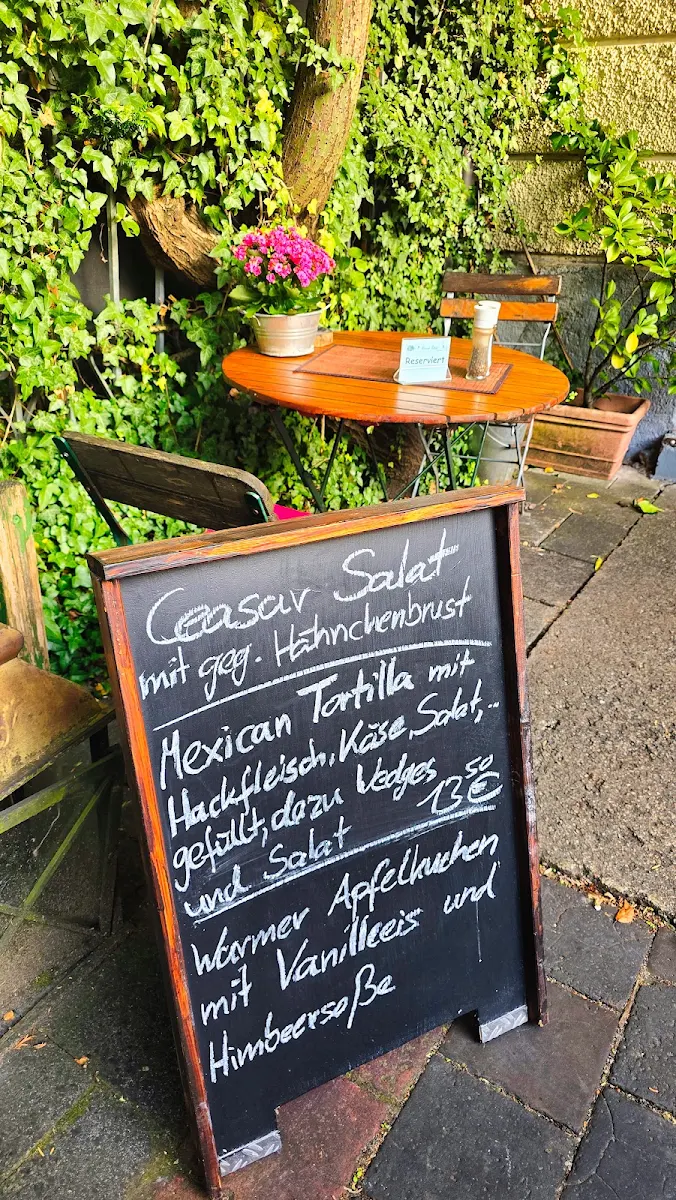 Reserviert
Ceasar Salat
mit geg. Hähnchenbrust
Mexican Tortilla mit
Hackfleisch, Käse, Salat,..
gefüllt, dazu Wedges
und Salat 13 50 €
Warmer Apfelkuchen
mit Vanilleeis und
Himbeersoße